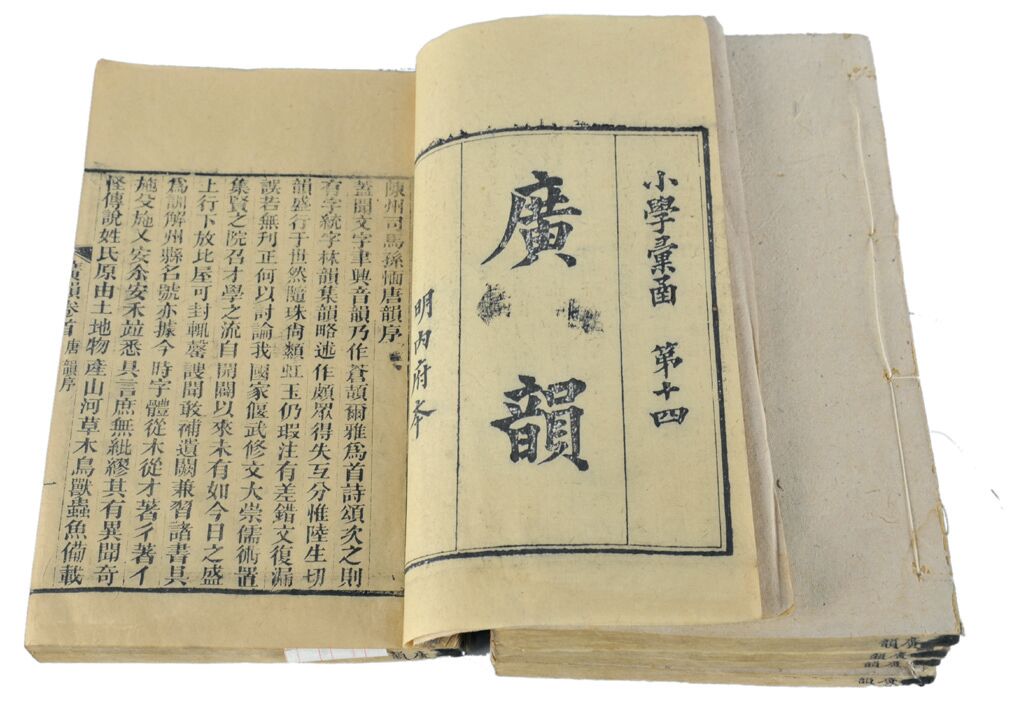 小學彙函　第十四
廣韻
明內府本
陳州司馬孫愐唐韻序
蓋聞文字聿興音韻乃作蒼頡爾雅爲首詩頌次之則
有字統字林韻集韻略述作頗眾得失互分惟陸生切
韻盛行于世然隨珠尚纇虹玉仍瑕注有差錯文復漏
誤若無刊正何以討論我國家偃武修文大崇儒術置
集賢之院召才學之流自開闢以來未有如今日之盛
上行下放比屋可封輒罄謏聞敢補遺闕兼習諸書具
爲訓解州縣名號亦據今時字體從木從才著彳著亻
施殳施又安尒安禾竝悉具言庶無紕繆其有異聞奇
怪傳說姓氏原由土地物產山河草木鳥獸蟲魚備載
廣韻卷首 唐韻序
廣韻
廣韻
廣韻
廣韻